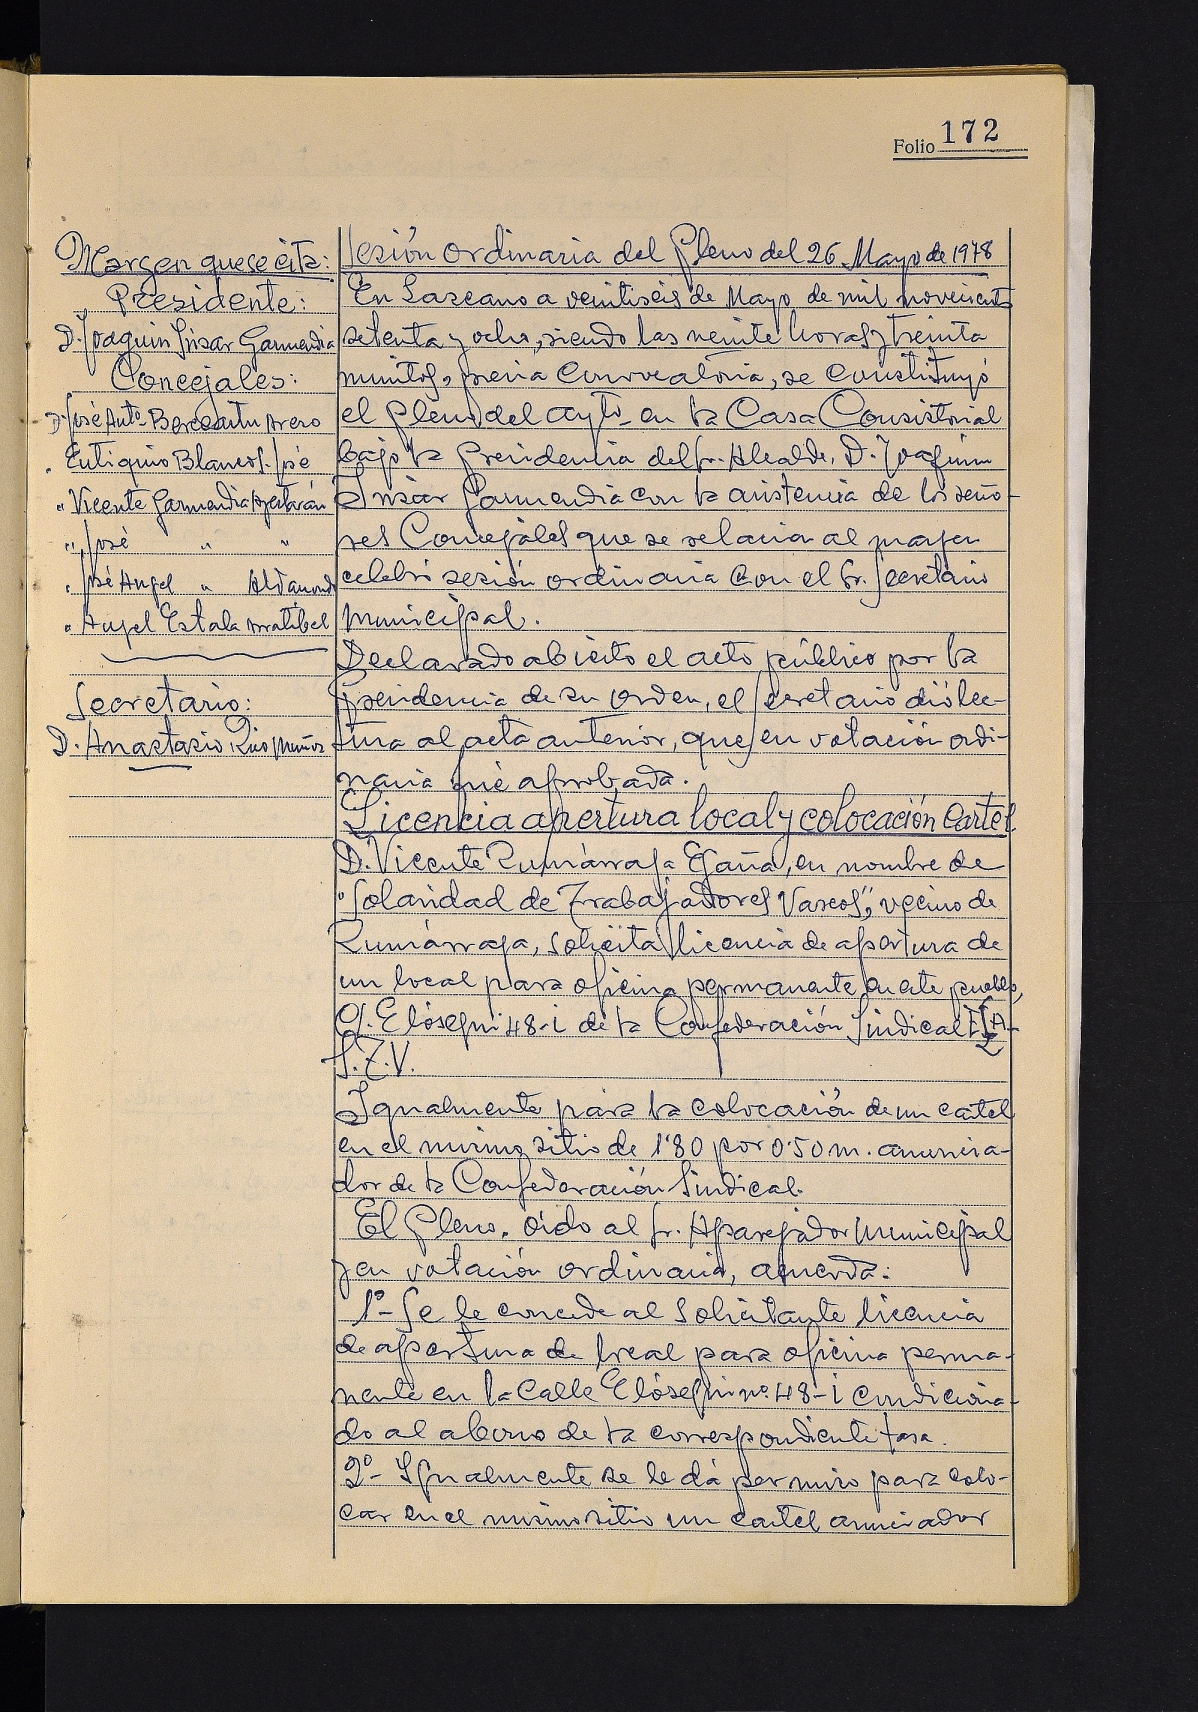 Folio 172
Margen que se cita:
Presidente:
D. Joaquin Insar Garmendia
Concejales:
D. José Antº Berceartu Arero
" Eutiquio Blanco S. José
" Vicente Garmendia
" José " "
" José Angel " Aldanondo
" Angel Estala Arratibel
Secretario:
D. Anastasio Rio Muñoz
Sesión Ordinaria del Pleno del 26 Mayo de 1978
En Lazcano a veintiseis de Mayo de mil novecientos
setenta y ocho, siendo las veinte horas y treinta
minutos, previa convocatoria, se constituyó
el Pleno del Aytº en la Casa Consistorial
bajo la Presidencia del Sr. Alcalde, D. Joaquin
Insar Garmendia con la asistencia de los seño-
res Concejales que se relacia al margen
celebró sesión ordinaria con el Sr. Secretario
municipal.
Declarado abierto el acto público por la
Presidencia de su orden, el Secretario dió lec-
tura al acta anterior, que en votación ordi-
naria fué aprobada.
Licencia apertura local y colocación Cartel
D. Vicente Zumárraga Egaña, en nombre de
"Solaridad de Trabajadores Vascos", vecino de
Zumárraga, solicita licencia de apertura de
un local para oficina permanente en este pueblo,
C/. Elósegui 48-i de la Confederación Sindical E.L.A-
S.T.V.
Igualmente para la colocación de un cartel
en el mismo sitio de 1'80 por 0'50 m. anuncia-
dor de la Confederación Sindical.
El Pleno, oido al Sr. Aparejador Municipal
y en votación ordinaria, acuerda:
1º- Se le concede al solicitante licencia
de apertura de local para oficina perma-
nente en la Calle Elósegui nº. 48-i condiciona-
do al abono de la correspondiente tasa.
2º- Igualmente se le dá permiso para colo-
car en el mismo sitio un cartel anunciador